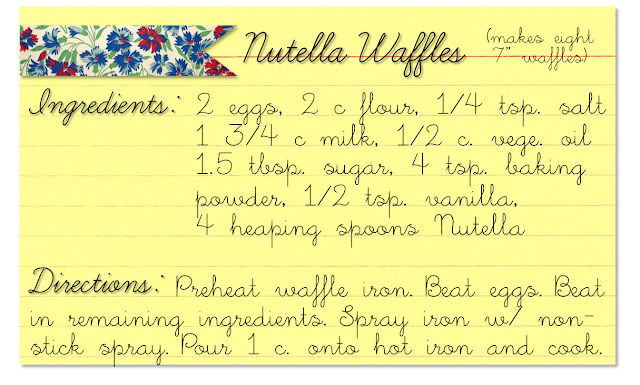 Nutella Waffles (makes eight
7" waffles)
Ingredients: 2 eggs, 2 c flour, 1/4 tsp. salt
1 3/4 c milk, 1/2 c. vege. oil
1.5 tbsp. sugar, 4 tsp. baking
powder, 1/2 tsp. vanilla,
4 heaping spoons Nutella
Directions: Preheat waffle iron. Beat eggs. Beat
in remaining ingredients. Spray iron w/ non-
stick spray. Pour 1 c. onto hot iron and cook.